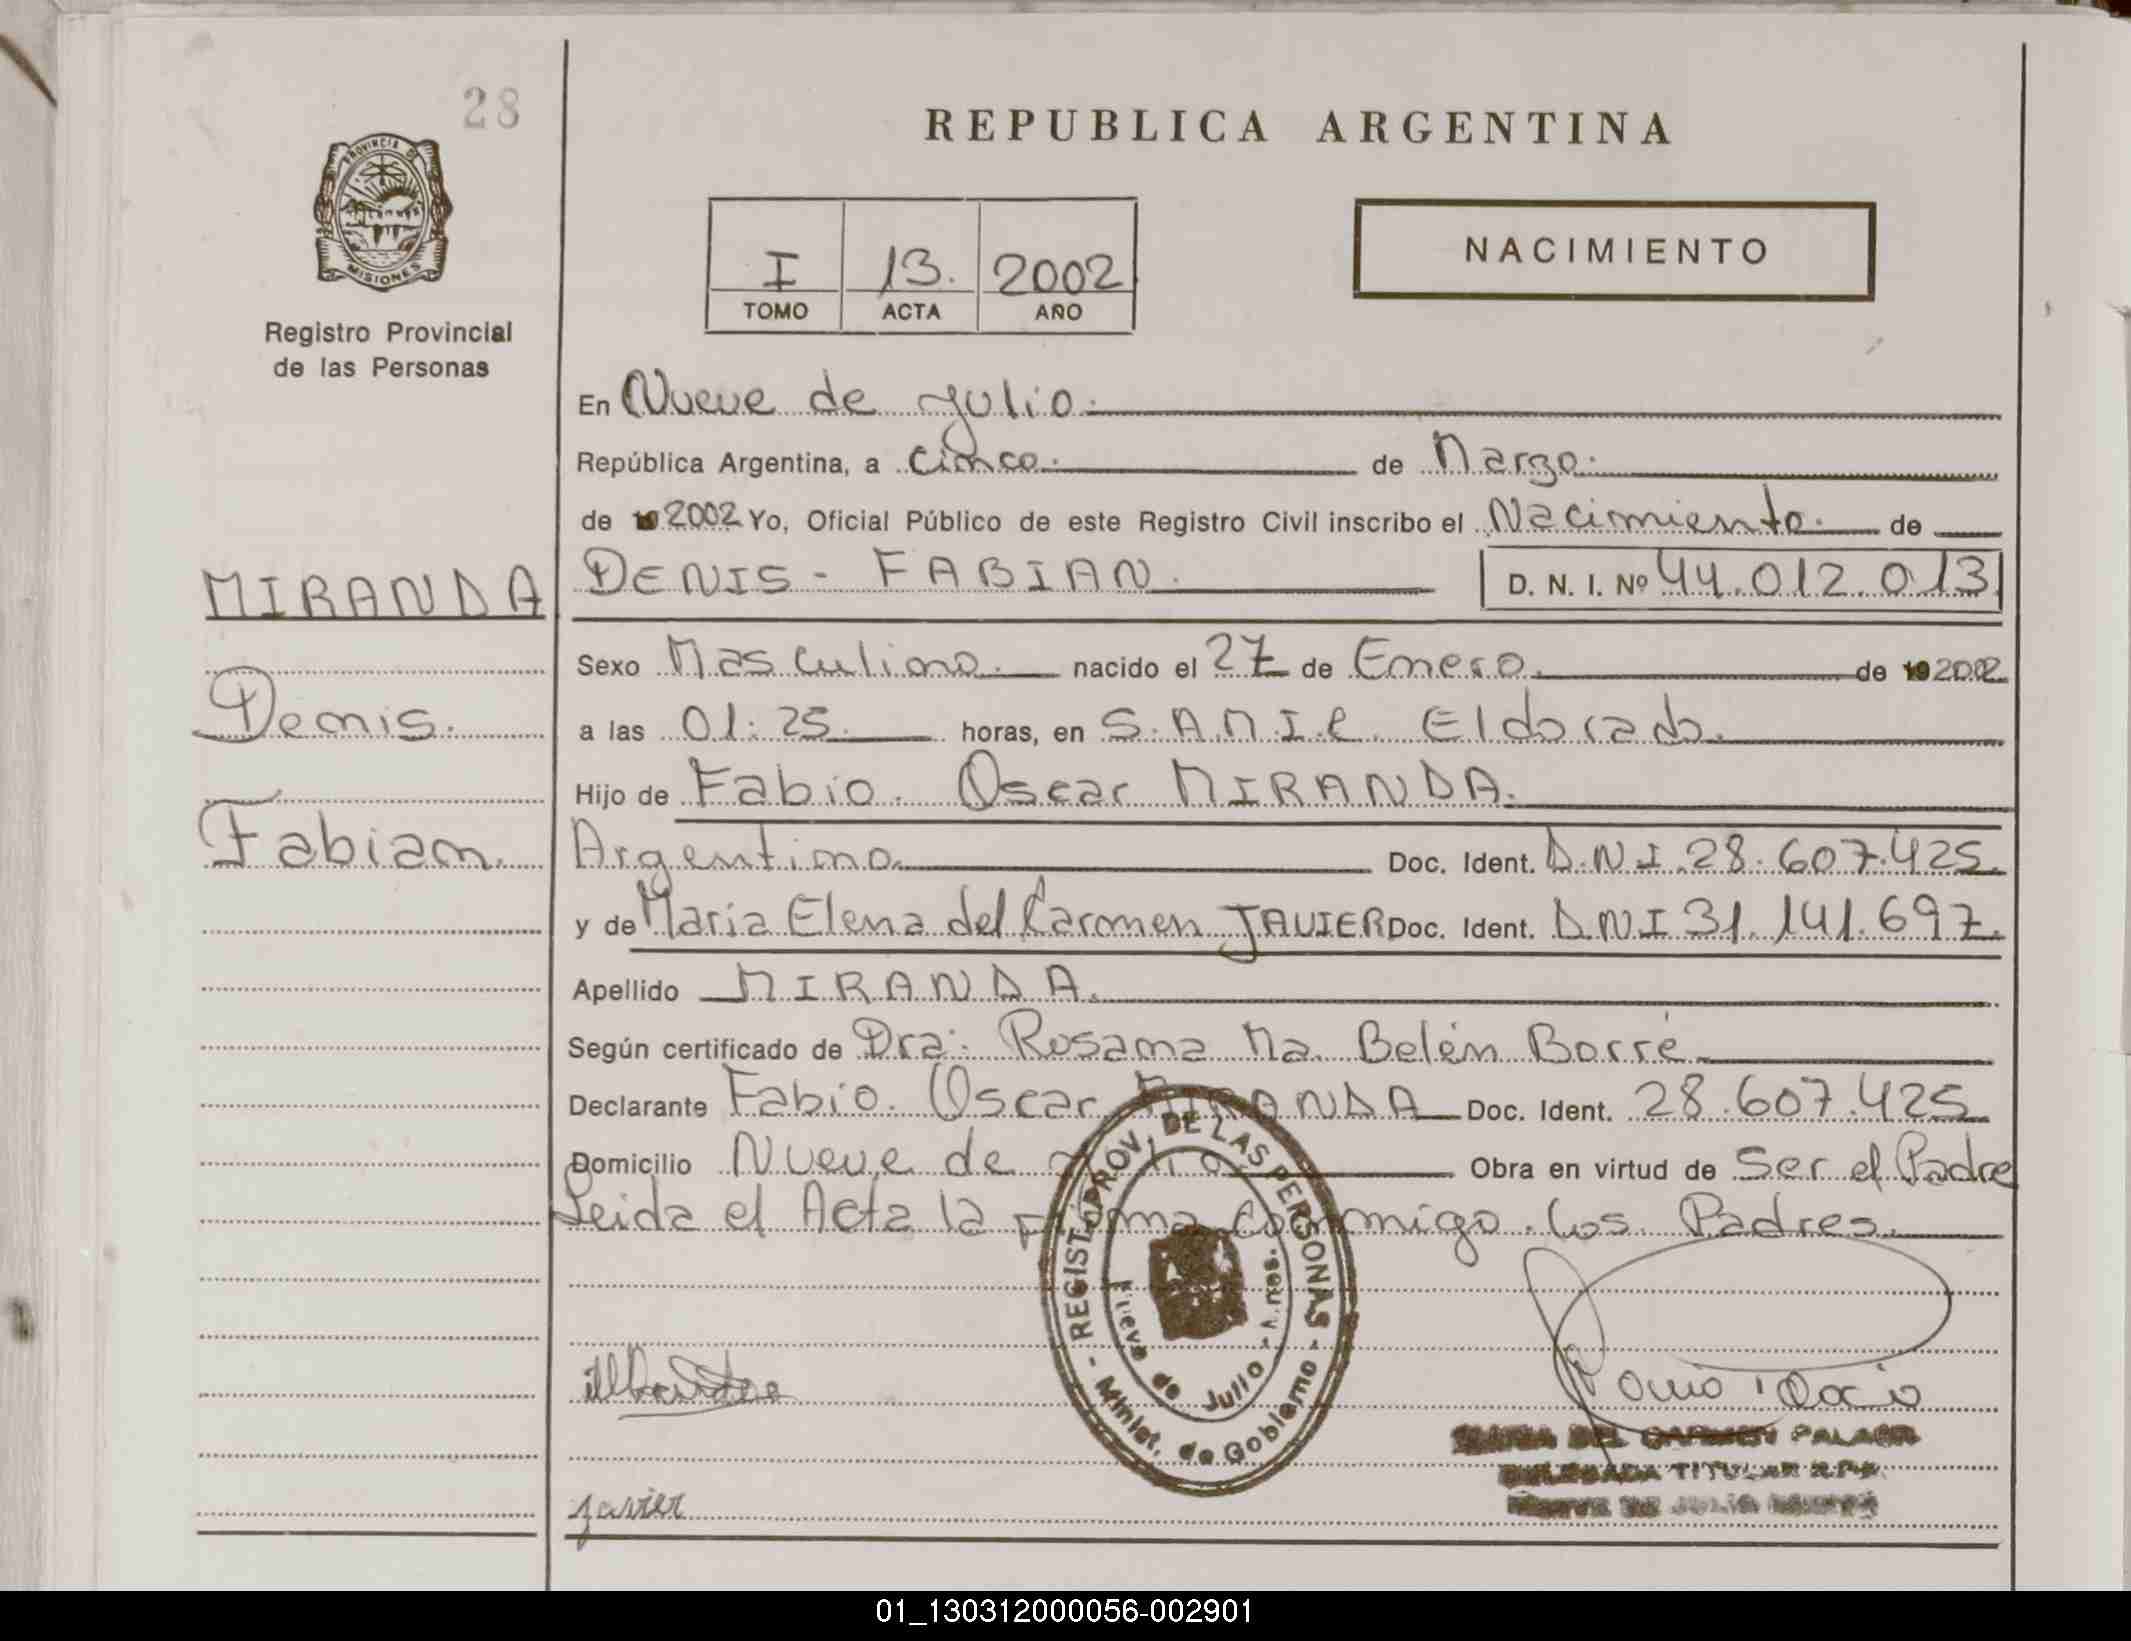 28
PROVINCIA DE
MISIONES
Registro Provincial
de las Personas
REPUBLICA ARGENTINA
I 13. 2002
TOMO ACTA AÑO
NACIMIENTO
En Nueve de Julio.
República Argentina, a cinco. de Marzo.
de 19 2002 Yo, Oficial Público de este Registro Civil inscribo el Nacimiento. de
MIRANDA
DENIS - FABIAN. D. N. I. Nº 44.012.013
Sexo Masculino. nacido el 27 de Enero. de 19 2002
Denis.
a las 01:25. horas, en S.A.M.I.C. Eldorado.
Hijo de Fabio. Oscar MIRANDA.
Fabian.
Argentino. Doc. Ident. D.N.I. 28.607.425.
y de Maria Elena del Carmen JAVIER Doc. Ident. DNI 31.141.697.
Apellido MIRANDA.
Según certificado de Dra: Rosana Ma. Belén Borré
Declarante Fabio. Oscar MIRANDA Doc. Ident. 28.607.425
Domicilio Nueve de Julio Obra en virtud de Ser el Padre
Leida el Acta la firma conmigo. los Padres.
- REGIST. PROV. DE LAS PERSONAS -
Minist. de Gobierno
Nueve de Julio - Mnes.
DEL CARMEN PALACIO
DELEGADA TITULAR R.P.P.
NUEVE DE JULIO
Javier
01_130312000056-002901